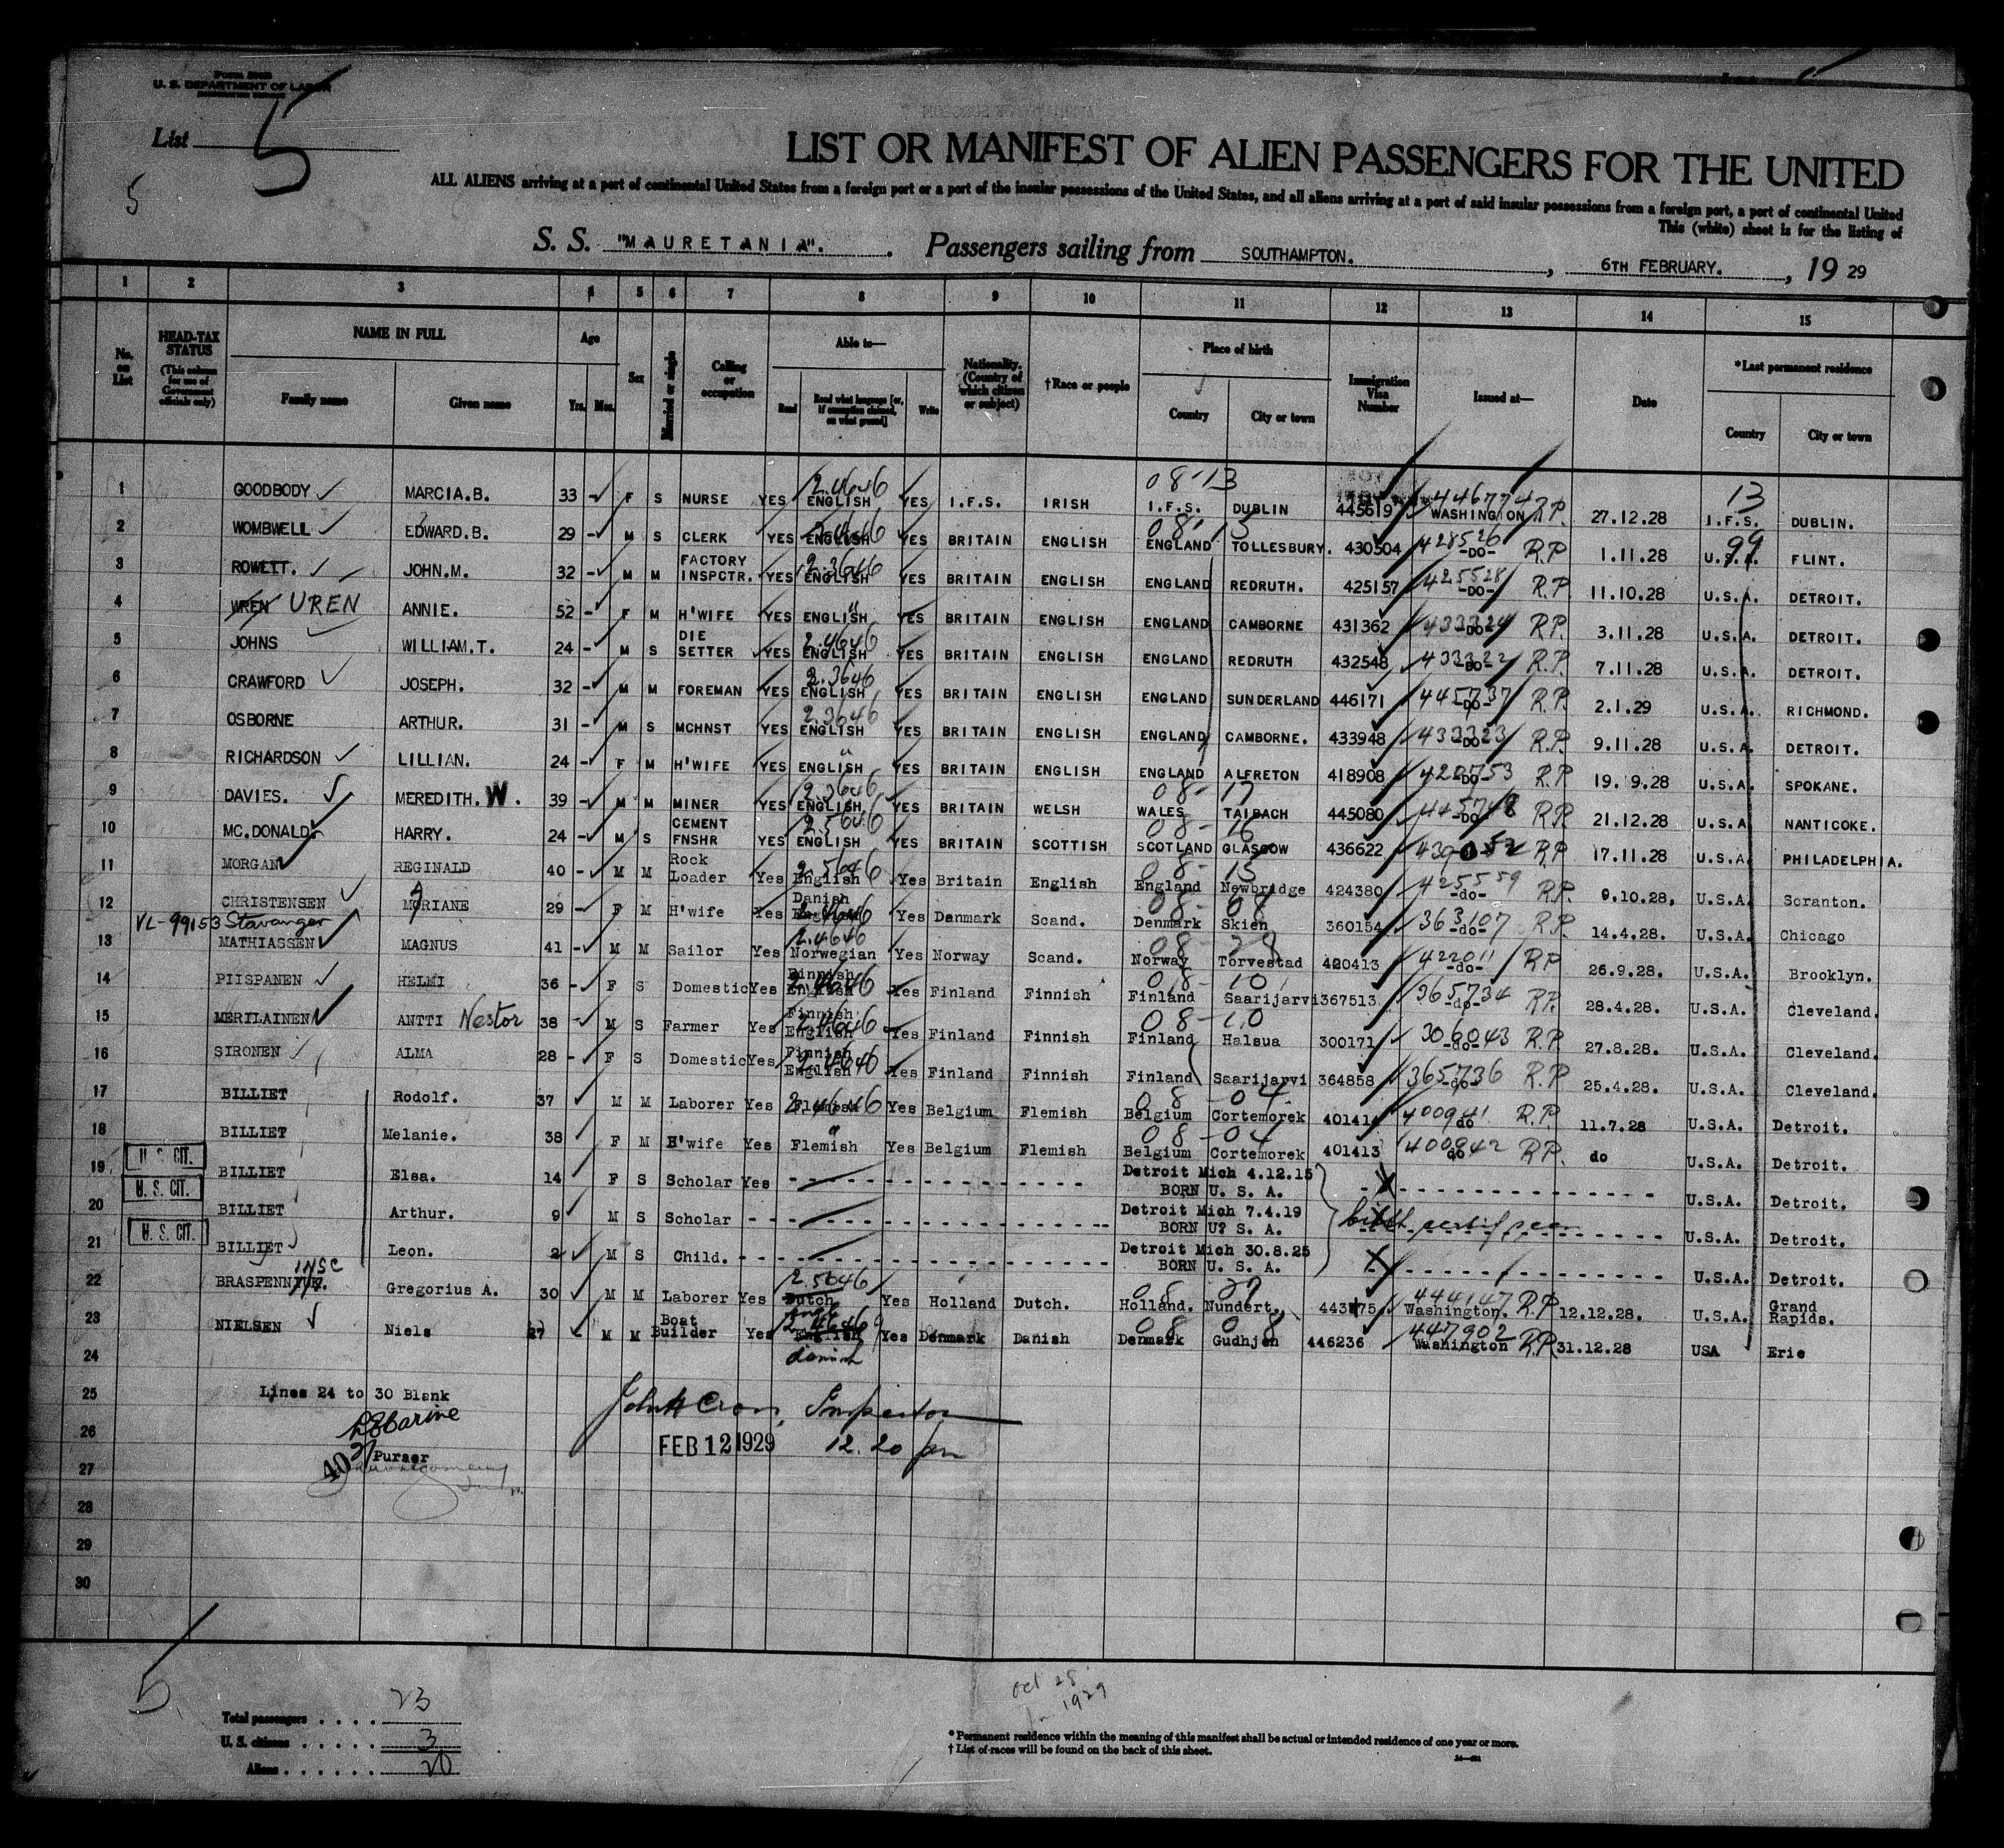 Form 500B
U. S. DEPARTMENT OF LABOR
IMMIGRATION SERVICE
List 5
5
LIST OR MANIFEST OF ALIEN PASSENGERS FOR THE UNITED
ALL ALIENS arriving at a port of continental United States from a foreign port or a port of the insular possessions of the United States, and all aliens arriving at a port of said insular possessions from a foreign port, a port of continental United
This (white) sheet is for the listing of
S. S. "MAURETANIA". Passengers sailing from SOUTHAMPTON. , 6TH FEBRUARY. , 19 29
1 2 3 4 5 6 7 8 9 10 11 12 13 14 15
No. on List HEAD-TAX STATUS (This column for use of Government officials only) NAME IN FULL Family name Given name Age Yrs. Mos. Sex Married or single Calling or occupation Able to— Read Read what language [or, if exemption claimed, on what ground] Write Nationality. (Country of which citizen or subject) †Race or people Place of birth Country City or town Immigration Visa Number Issued at— Date *Last permanent residence Country City or town
1 GOODBODY MARCIA.B. 33 - F S NURSE YES 2.4646 ENGLISH YES I.F.S. IRISH 08-13 I.F.S. DUBLIN 445619 446774 WASHINGTON R.P. 27.12.28 13 I.F.S. DUBLIN.
2 WOMBWELL EDWARD.B. 29 - M S CLERK YES ENGLISH YES BRITAIN ENGLISH 08-15 ENGLAND TOLLESBURY. 430504 428526 -DO- R.P 1.11.28 99 FLINT.
3 ROWETT. JOHN.M. 32 - M M FACTORY INSPCTR. YES 2.3646 ENGLISH YES BRITAIN ENGLISH ENGLAND REDRUTH. 425157 425528 -DO- R.P. 11.10.28 U.S.A. DETROIT.
4 WREN UREN ANNIE. 52 - F M H'WIFE YES " ENGLISH YES BRITAIN ENGLISH ENGLAND CAMBORNE 431362 433324 -DO- R.P. 3.11.28 U.S.A. DETROIT.
5 JOHNS WILLIAM.T. 24 - M S DIE SETTER YES 2.4646 ENGLISH YES BRITAIN ENGLISH ENGLAND REDRUTH 432548 433322 -DO- R.P. 7.11.28 U.S.A. DETROIT.
6 CRAWFORD JOSEPH. 32 - M M FOREMAN YES 2.3646 ENGLISH YES BRITAIN ENGLISH ENGLAND SUNDERLAND 446171 445737 -DO- R.P. 2.1.29 U.S.A. RICHMOND.
7 OSBORNE ARTHUR. 31 - M S MCHNST YES 2.3646 ENGLISH YES BRITAIN ENGLISH ENGLAND CAMBORNE. 433948 433323 -DO- R.P. 9.11.28 U.S.A. DETROIT.
8 RICHARDSON LILLIAN. 24 - F M H'WIFE YES " ENGLISH YES BRITAIN ENGLISH ENGLAND ALFRETON 418908 420753 -DO- R.P. 19.9.28 U.S.A. SPOKANE.
9 DAVIES. MEREDITH. W. 39 - M M MINER YES 2.3646 ENGLISH YES BRITAIN WELSH 08-17 WALES TAIBACH 445080 445748 -DO- R.P. 21.12.28 U.S.A. NANTICOKE.
10 MC.DONALD. HARRY. 24 - M S CEMENT FNSHR YES 2.5646 ENGLISH YES BRITAIN SCOTTISH 08-16 SCOTLAND GLASGOW 436622 -DO- R.P 17.11.28 U.S.A. PHILADELPHIA.
11 MORGAN REGINALD 40 - M M Rock Loader Yes 2.5646 English Yes Britain English 08-15 England Newbridge 424380 425559 -do- R.P. 9.10.28, U.S.A. Scranton.
12 CHRISTENSEN MORIANE 29 - F M H'wife Yes Danish English Yes Denmark Scand. 08-08 Denmark Skien 360154 363107 -do- R.P. 14.4.28. U.S.A. Chicago
VL-99153 Stavanger
13 MATHIASSEN MAGNUS 41 - M M Sailor Yes 2.4646 Norwegian Yes Norway Scand. 08-28 Norway Torvestad 420413 422011 -do- R.P 26.9.28. U.S.A. Brooklyn.
14 PIISPANEN HELMI 36 - F S Domestic Yes Finnish English Yes Finland Finnish 08-10 Finland Saarijarvi 367513 365734 -do- R.P. 28.4.28. U.S.A. Cleveland.
15 MERILAINEN ANTTI Nestor 38 - M S Farmer Yes Finnish English Yes Finland Finnish 08-10 Finland Halsua 300171 306043 -do- R.P 27.8.28. U.S.A. Cleveland.
16 SIRONEN ALMA 28 - F S Domestic Yes Finnish English Yes Finland Finnish Finland Saarijarvi 364858 365736 -do- R.P 25.4.28. U.S.A. Cleveland.
17 BILLIET Rodolf. 37 M M Laborer Yes 2.4646 Flemish Yes Belgium Flemish 08-04 Belgium Cortemorek 401414 400941 do R.P. 11.7.28 U.S.A. Detroit.
18 BILLIET Melanie. 38 F M H'wife Yes " Flemish Yes Belgium Flemish 08-04 Belgium Cortemorek 401413 400942 do R.P. do U.S.A. Detroit.
19 U. S. CIT. BILLIET Elsa. 14 F S Scholar Yes Detroit Mich 4.12.15 BORN U. S. A. U.S.A. Detroit.
20 U. S. CIT. BILLIET Arthur. 9 M S Scholar Detroit Mich 7.4.19 BORN U? S. A. birth certif seen U.S.A. Detroit.
21 U. S. CIT. BILLIET Leon. 2 M S Child. Detroit Mich 30.8.25 BORN U. S. A. U.S.A. Detroit.
22 BRASPENN Gregorius A. 30 M M Laborer Yes 2.5646 Dutch Yes Holland Dutch. 08 27 Holland. Nundert. 444147 Washington. R.P 12.12.28. U.S.A. Grand Rapids.
23 NIELSEN Niels 27 M M Boat Builder Yes English danish Yes Denmark Danish 08 08 Denmark Gudhjen 446236 447902 Washington R.P. 31.12.28 USA Erie
24
25 Lines 24 to 30 Blank John H Cron, Inspector
26 FEB 12 1929 12.20 pm
27 Purser
28
29
30
5
Total passengers . . . . 23
U. S. citizens . . . . . 3
Aliens . . . . . . 20
Oct 28
1929
* Permanent residence within the meaning of this manifest shall be actual or intended residence of one year or more.
† List of races will be found on the back of this sheet.